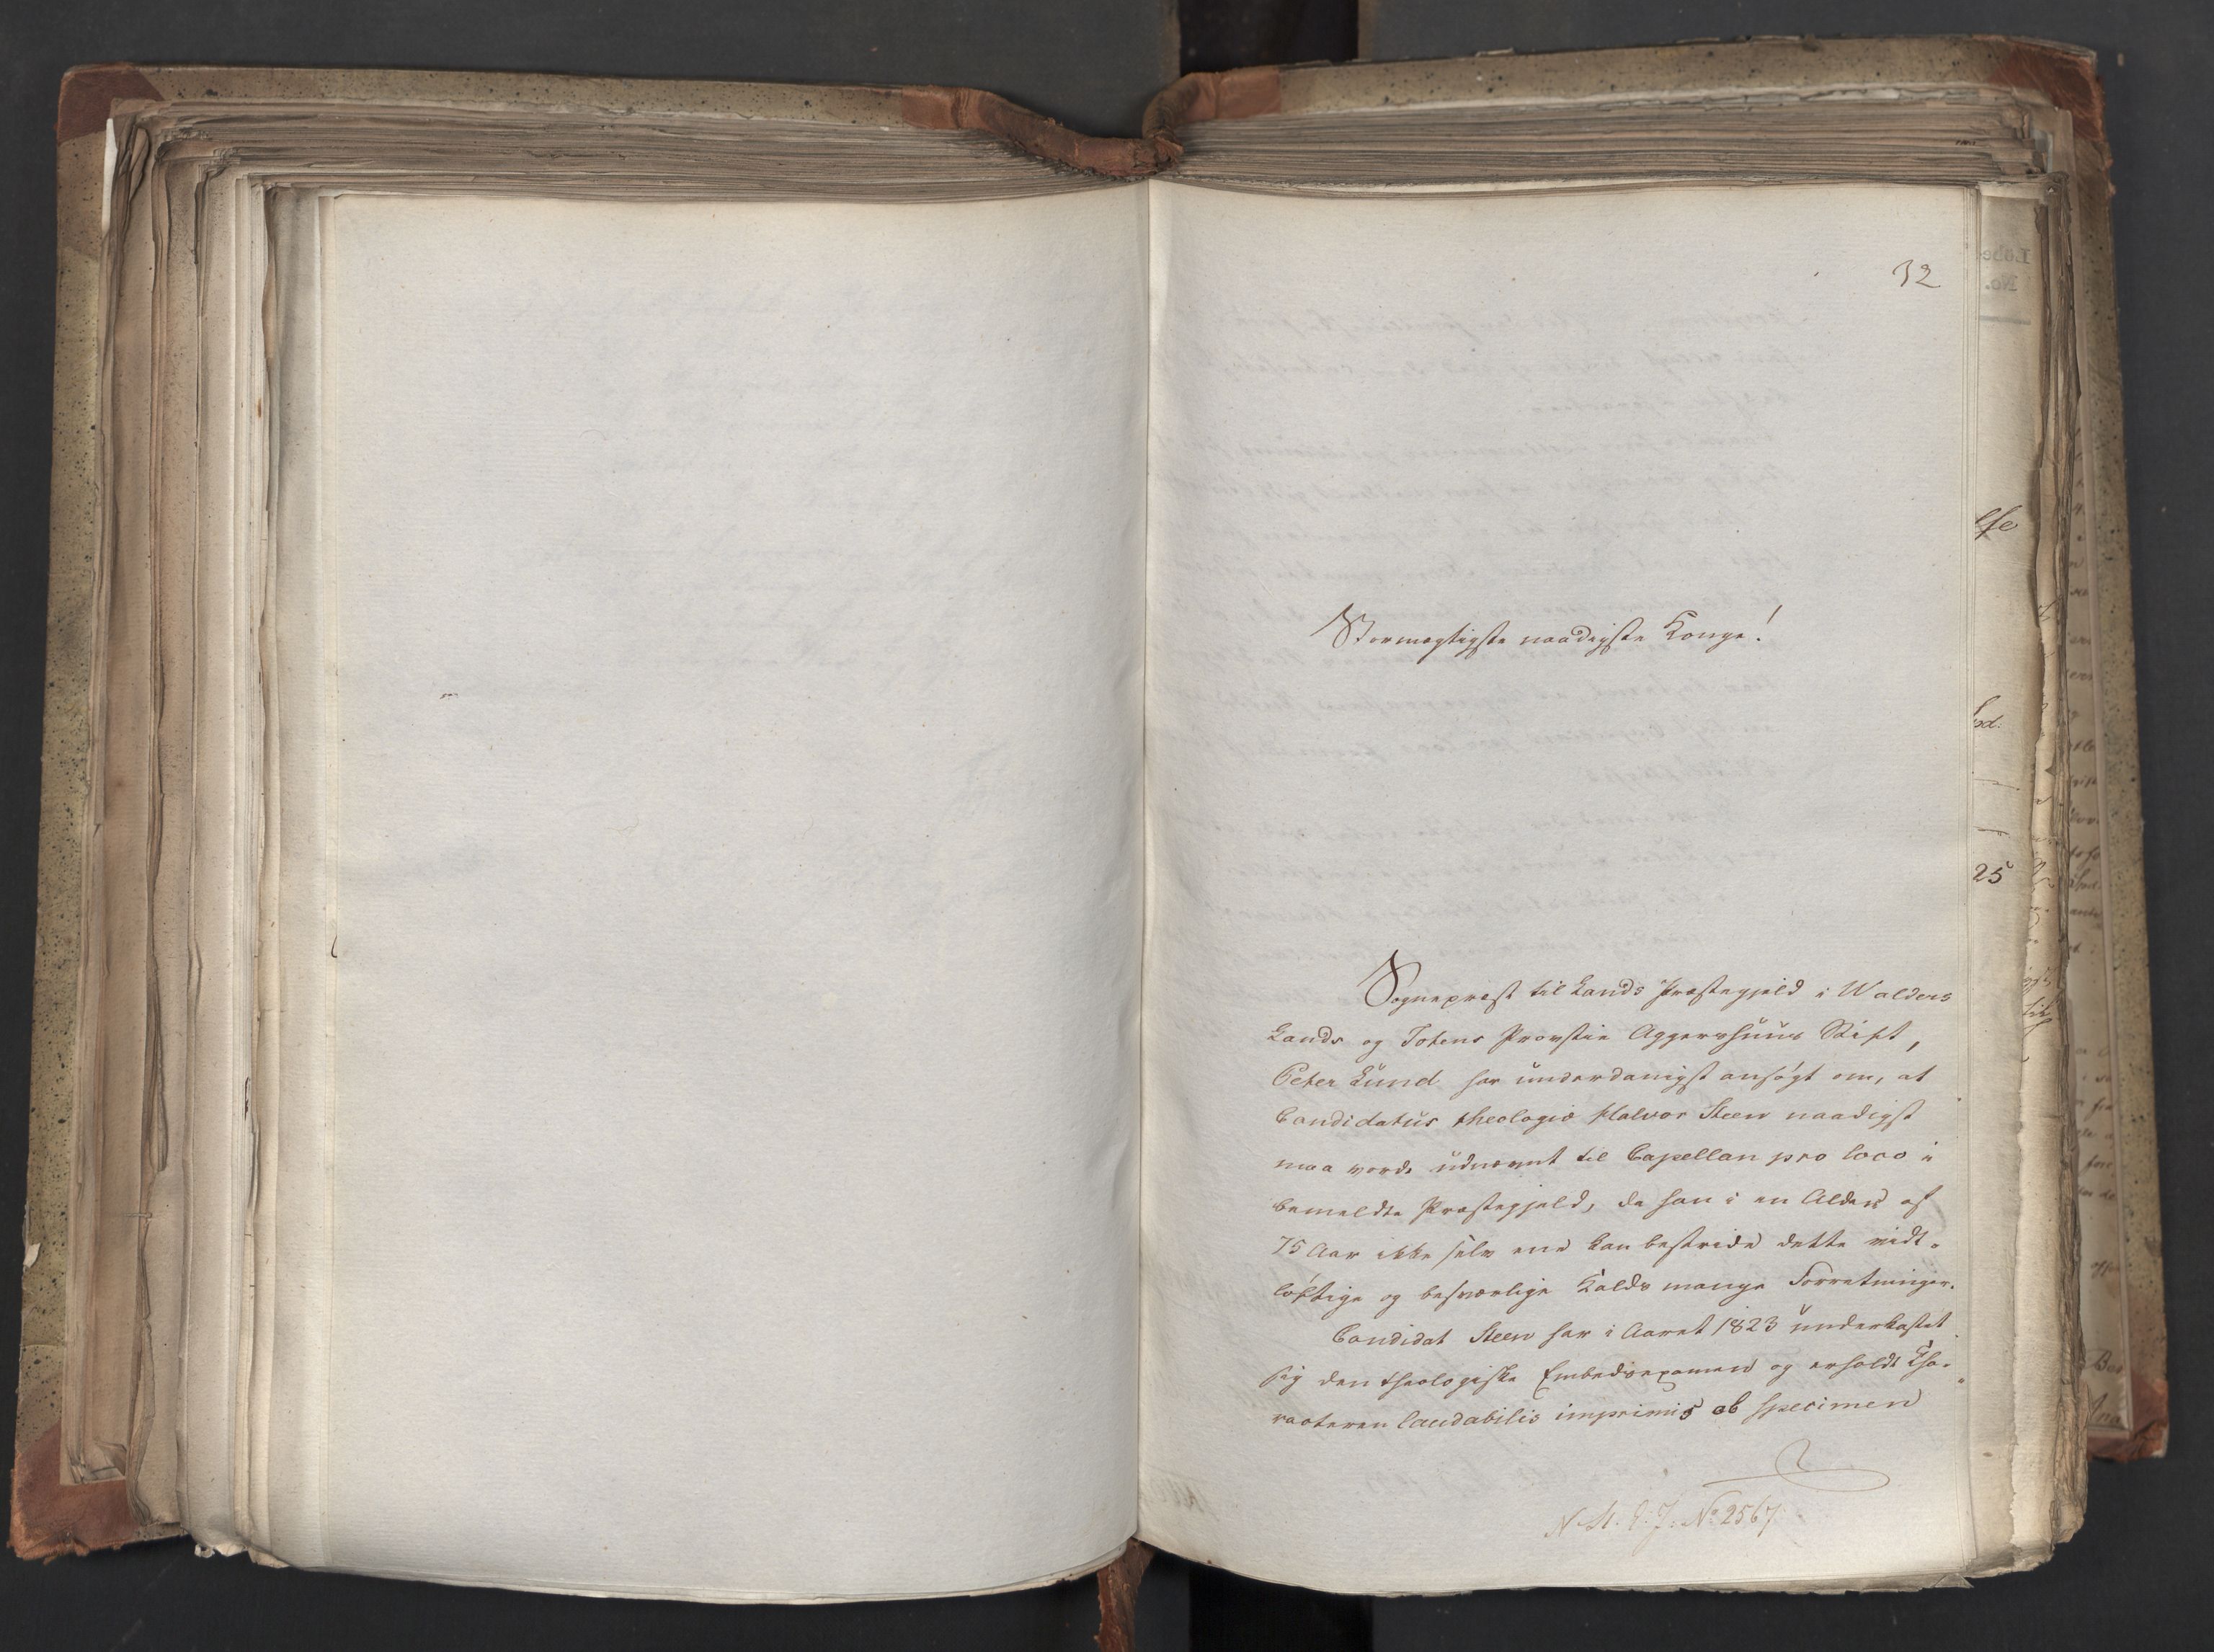 32
Stormægtigste naadigste Konge!
Sogneprest til Lands Præstegjeld i Walders
Lands og Totens Provstie Aggershuus Stift,
Peter Lund har underdanigst ansögt om, at
Candidatus theologiæ Halvor Steen naadigst
maa vorde udnævnt til Capellan pro loco i
bemeldte Præstegjeld, da han i en Alder af
75 Aar ikke selv ene kan bestride dette vidt-
löftige og besværlige Kalds mange Forretninger.
Candidat Steen har i Aaret 1823 underkastet
sig den theologiske Embedsexamen og erholdt Cha-
racteren laudabilis imprimis ob specimen
No 2567
25